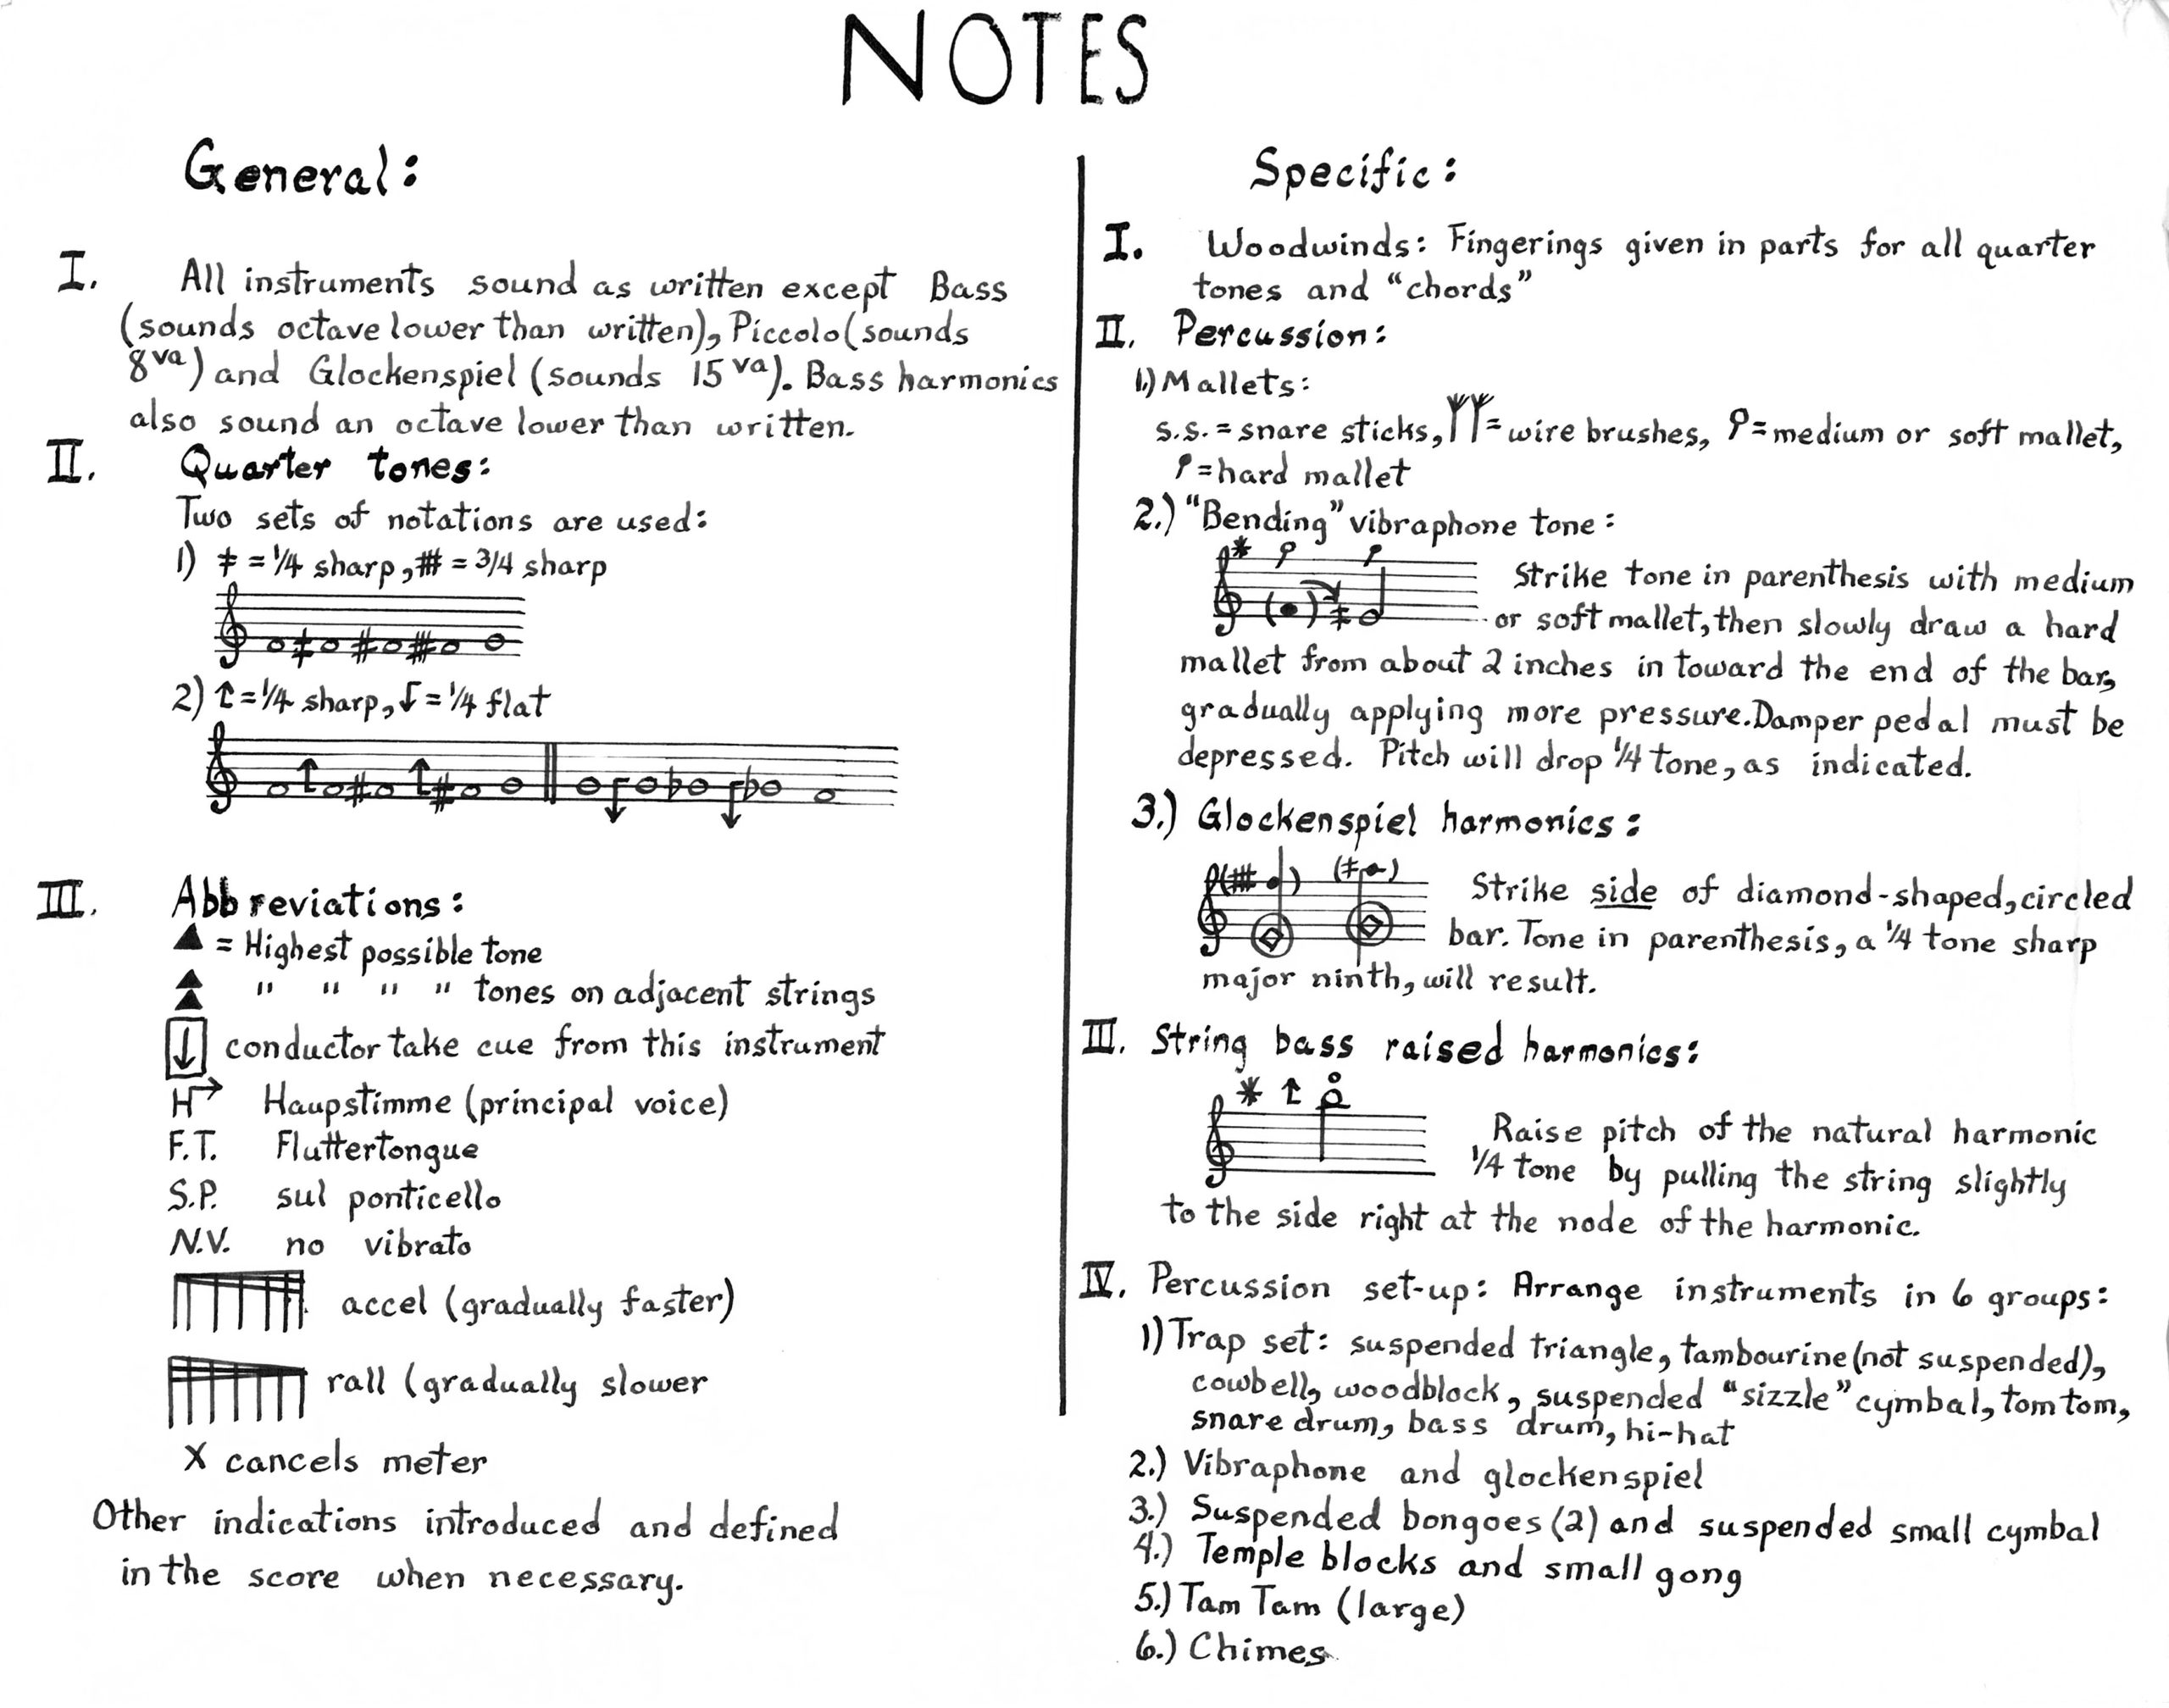 NOTES
General:
I. All instruments sound as written except Bass
(sounds octave lower than written), Piccolo (sounds
8va) and Glockenspiel (sounds 15va). Bass harmonics
also sound an octave lower than written.
II. Quarter tones:
Two sets of notations are used:
1) ‡ = 1/4 sharp, # = 3/4 sharp
2) ↑ = 1/4 sharp, ↓ = 1/4 flat
III. Abbreviations:
▲ = Highest possible tone
▲▲ " " " " tones on adjacent strings
↓ conductor take cue from this instrument
H→ Haupstimme (principal voice)
F.T. Fluttertongue
S.P. sul ponticello
N.V. no vibrato
accel (gradually faster)
rall (gradually slower
X cancels meter
Other indications introduced and defined
in the score when necessary.
Specific:
I. Woodwinds: Fingerings given in parts for all quarter
tones and "chords"
II. Percussion:
1.) Mallets:
s.s. = snare sticks, = wire brushes, = medium or soft mallet,
= hard mallet
2.) "Bending" vibraphone tone:
* Strike tone in parenthesis with medium
or soft mallet, then slowly draw a hard
mallet from about 2 inches in toward the end of the bar,
gradually applying more pressure. Damper pedal must be
depressed. Pitch will drop 1/4 tone, as indicated.
3.) Glockenspiel harmonics:
Strike side of diamond-shaped, circled
bar. Tone in parenthesis, a 1/4 tone sharp
major ninth, will result.
III. String bass raised harmonics:
* ↑ Raise pitch of the natural harmonic
1/4 tone by pulling the string slightly
to the side right at the node of the harmonic.
IV. Percussion set-up: Arrange instruments in 6 groups:
1) Trap set: suspended triangle, tambourine (not suspended),
cowbell, woodblock, suspended "sizzle" cymbal, tom tom,
snare drum, bass drum, hi-hat
2.) Vibraphone and glockenspiel
3.) Suspended bongoes (2) and suspended small cymbal
4.) Temple blocks and small gong
5.) Tam Tam (large)
6.) Chimes